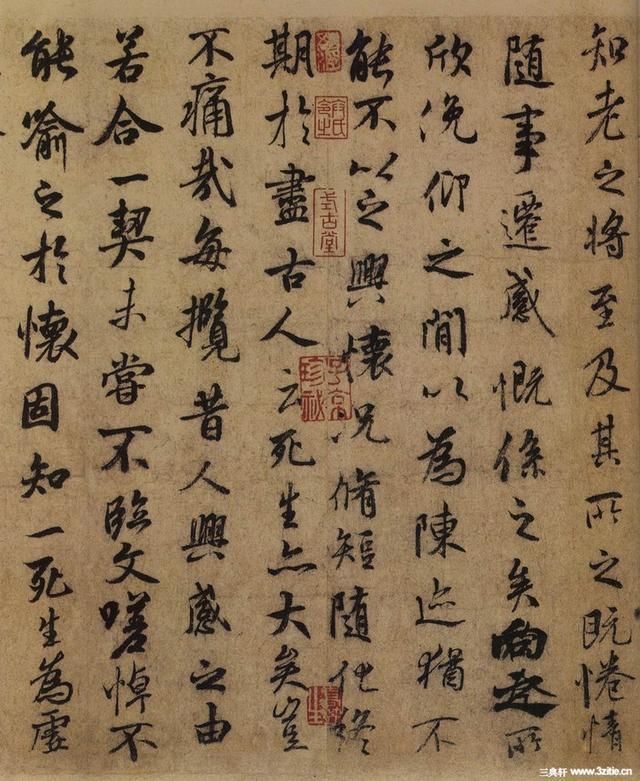 知老之將至及其所之既惓情
隨事遷感慨係之矣向之所
欣俛仰之閒以為陳迹猶不
能不以之興懷況脩短隨化終
期於盡古人云死生亦大矣豈
不痛哉每攬昔人興感之由
若合一契未嘗不臨文嗟悼不
能喻之於懷固知一死生為虛
式古堂
三典轩 www.3zitie.cn